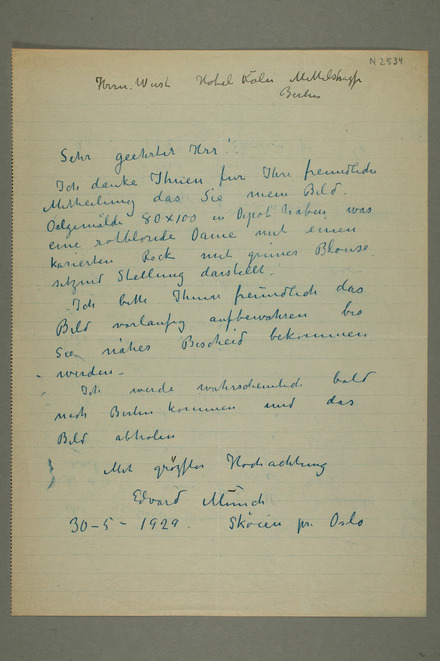 N 2534
Herrn. Wust Hotel Köln Mittelstrasse
Berlin
Sehr geehrter Herr!
Ich danke Ihnen für Ihre freundliche
Mittheilung das Sie mein Bild.
Oelgemälde 80×100 in Depot haben was
eine rotblonde Dame mit einen
karierten Rock mit grüner Blouse
sitzend Stellung darstellt –
Ich bitte Ihnen freundlich das
Bild vorlaüfig aufbewahren bis
Sie näher Bescheid bekommen
werden –
Ich werde wahrscheinlich bald
nach Berlin kommen und das
Bild abholen
Mit größter Hochachtung
Edvard Munch
30–5–1929. Skøien pr. Oslo